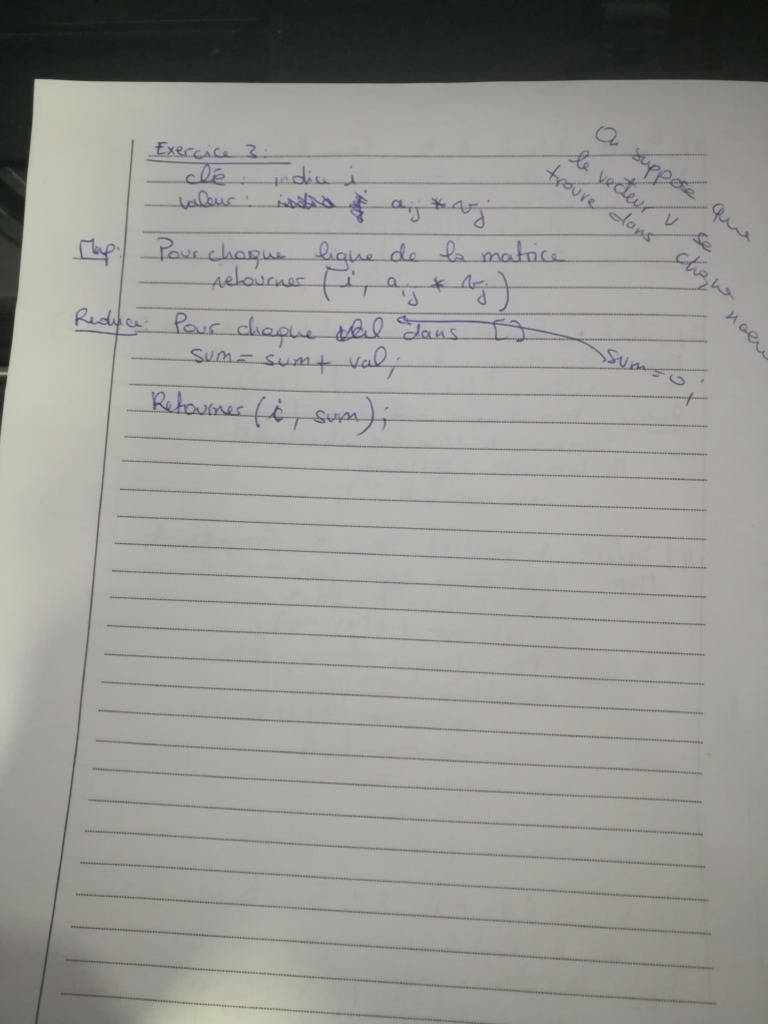 Exercice 3:
clé: indice i
valeur: aij * vj
Map: Pour chaque ligne de la matrice
retourner (i, aij * vj)
Reduce: Pour chaque val dans []
sum = sum + val;
Retourner (i, sum);
sum = 0;
On suppose que
le vecteur v se
trouve dans chaque